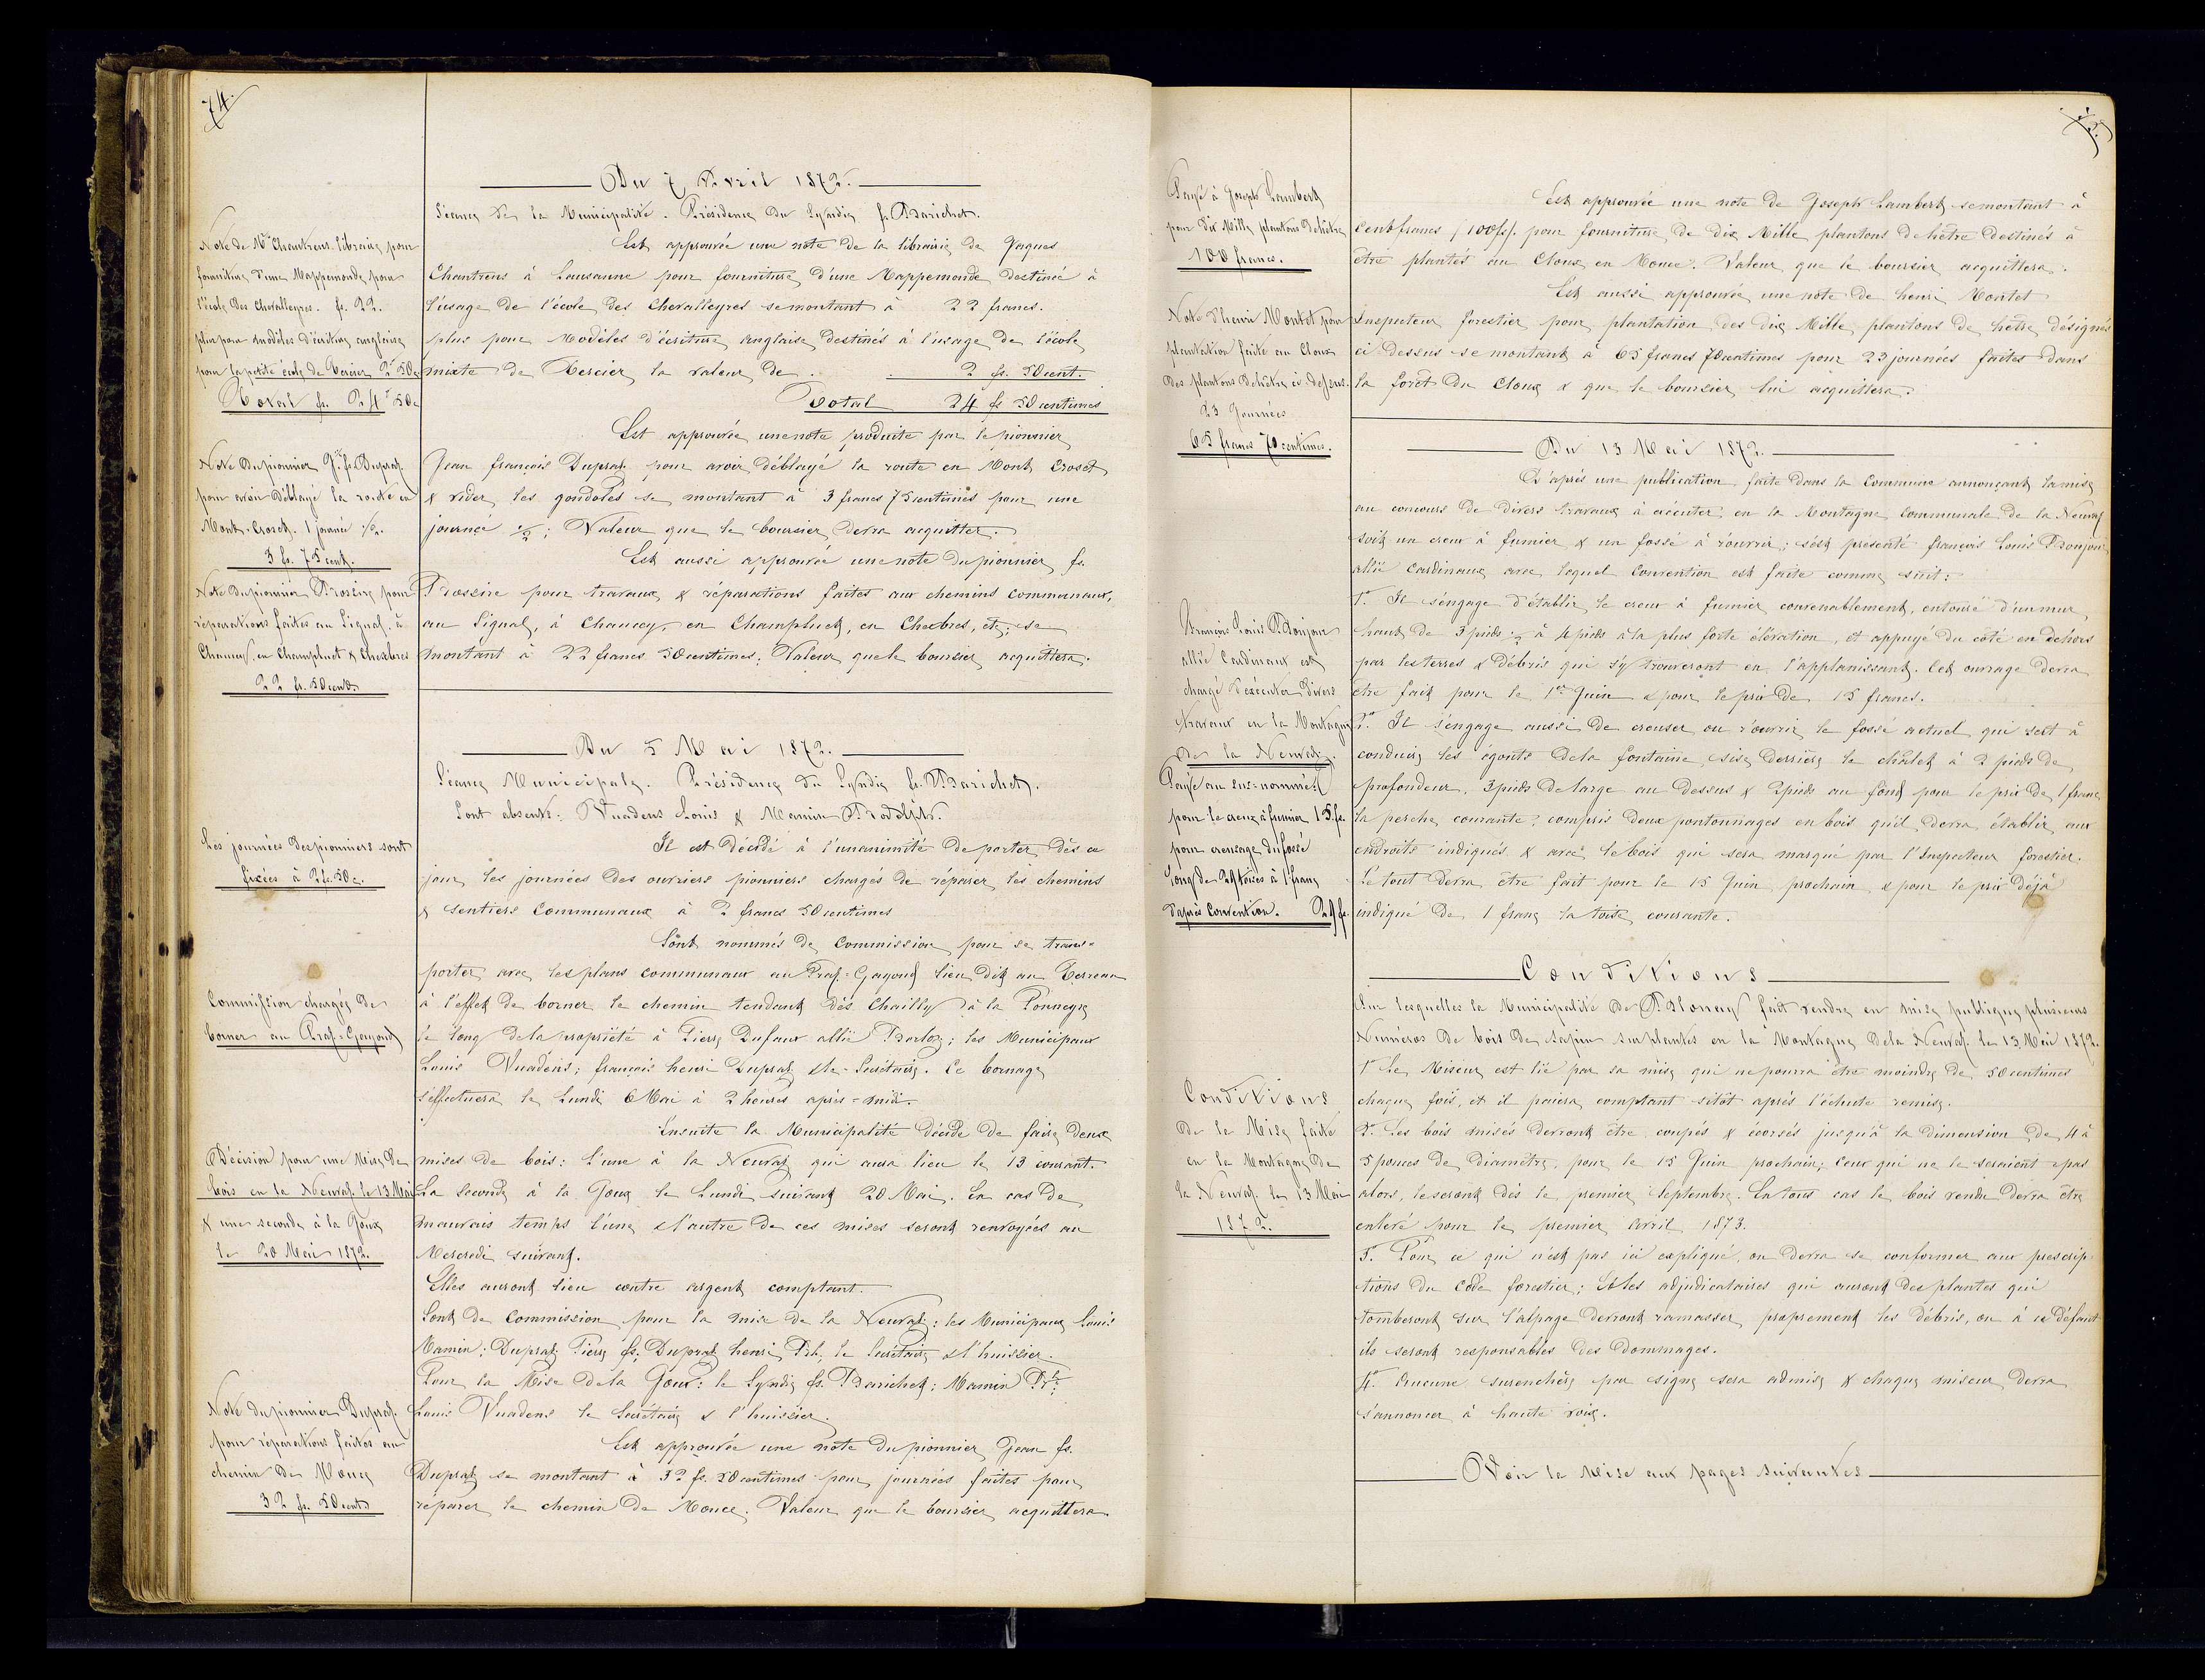 74.
Du 7 Avril 1872.
Séance de la Municipalité. Présidence du Syndic fs. Barichet.
Note de Mr. Chantrens libraire pour
fourniture d'une Mappemonde pour
l'école des Chevalleyres. fs. 22.
plus pour modèles d'écriture anglaise
pour la petite école de Tercier 2 fs 50c
Total fs. 24 fs 50c
Est approuvée une note de la librairie de Jaques
Chantrens à Lausanne pour fourniture d'une Mappemonde destinée à
l'usage de l'école des Chevalleyres se montant à 22 francs.
plus pour Modèles d'écriture anglaise destinés à l'usage de l'école
mixte de Tercier la valeur de . . 2 fs. 50 cent.
Total 24 fs 50 centimes
Note du pionnier Jn. fs. Dupraz
pour avoir déblayé la route en
Mont-Croset. 1 journée 1/2.
3 fs. 75 cent.
Est approuvée une note produite par le pionnier
Jean françois Dupraz pour avoir déblayé la route en Mont Croset
& vider les gondoles se montant à 3 francs 75 centimes pour une
journée 1/2; Valeur que le boursier devra acquitter.
Note du pionnier Brossire pour
réparations faites au Signal. à
Chaucey, en Champluet & Chexbres
22 fs. 50 cent.
Est aussi approuvée une note du pionnier fs.
Brossire pour travaux & réparations faites aux chemins communaux,
au Signal, à Chaucey, en Champluet, en Chexbres, etc; se
montant à 22 francs 50 centimes. Valeur que le boursier acquittera.
Du 5 Mai 1872.
Séance Municipale. Présidence du Syndic fs. Barichet.
Sont absents: Vuadens Louis & Mamin Rodolphe.
Les journées des pionniers sont
fixées à 2 fs. 50 c.
Il est décidé à l'unanimité de porter dès ce
jour les journées des ouvriers pionniers chargés de réparer les chemins
& sentiers Communaux à 2 francs 50 centimes
Commission chargée de
borner au Praz-Gayoud
Sont nommés de Commission pour se trans-
porter avec les plans communaux au Praz-Gayoud lieu dit au Terreau
à l'effet de borner le chemin tendant dès Chailly à la Ponneyre
le long de la propriété à Pierre Dufaux allié Borloz; les Municipaux
Louis Vuadens; françois henri Dupraz & le Secrétaire. Ce bornage
s'effectuera le Lundi 6 Mai à 2 heures après-midi.
Décision pour une Mise de
bois en la Neuvaz le 13 Mai
& une seconde à la Joux
le 20 Mai 1872.
Ensuite la Municipalité décide de faire deux
mises de bois: L'une à la Neuvaz qui aura lieu le 13 courant.
La seconde à la Joux le Lundi suivant 20 Mai. En cas de
mauvais temps l'une & l'autre de ces mises seront renvoyées au
Mercredi suivant.
Elles auront lieu contre argent comptant.
Sont de Commission pour la mise de la Neuvaz: les Municipaux Louis
Mamin; Dupraz Pierre fs; Dupraz henri Frh, le Secrétaire & l'huissier.
Pour la Mise de la Joux: le Syndic fs. Barichet; Mamin Rhe:
Louis Vuadens le Secrétaire & l'huissier.
Note du pionnier Dupraz
pour réparations faites au
chemin de Mouce
32 fs. 50 cent
Est approuvée une note du pionnier Jean fs.
Dupraz se montant à 32 fs. 50 centimes pour journées faites pour
réparer le chemin de Mouce. Valeur que le boursier acquittera
75.
Payé à Joseph Lambert
pour dix Mille plantons de hêtre
100 francs.
Est approuvée une note de Joseph Lambert se montant à
Cent francs (100 fs). pour fourniture de dix Mille plantons de hêtre destinés à
être plantés au Cloux en Mouce. Valeur que le boursier acquittera.
Note d'henri Montet pour
plantation faite au Cloux
des plantons de hêtre ci-dessus.
23 Journées
65 francs 70 centimes.
Est aussi approuvée une note de henri Montet
Inspecteur forestier pour plantation des dix Mille plantons de hêtre désignés
ci-dessus se montant à 65 francs 70 centimes pour 23 journées faites dans
la forêt du Cloux & que le boursier lui acquittera.
Du 13 Mai 1872.
D'après une publication faite dans la Commune annonçant la mise
au concours de divers travaux à exécuter en la Montagne Communale de la Neuvaz
soit un creux à fumier & un fossé à r'ouvrir; s'est présenté françois Louis Bonjour
allié Cardinaux avec lequel Convention est faite comme suit:
françois Louis Bonjour
allié Cardinaux est
chargé d'exécuter divers
travaux en la Montagne
de la Neuvaz.
1° Il s'engage d'établir le creux à fumier convenablement, entouré d'un mur
haut de 3 pieds 1/2 à 4 pieds à la plus forte élévation, et appuyé du côté en dehors
par les terres & débris qui s'y trouveront en l'applanissant. Cet ouvrage devra
être fait pour le 1er Juin & pour le prix de 15 francs.
2° Il s'engage aussi de creuser ou r'ouvrir le fossé actuel qui sert à
conduire les égouts de la fontaine, sise derrière le châlet à 2 pieds de
profondeur. 3 pieds de large au dessus & 2 pieds au fond pour le prix de 1 franc
la perche courante; compris deux pontonnages en bois qu'il devra établir aux
endroits indiqués & avec le bois qui sera marqué par l'Inspecteur forestier.
Le tout devra être fait pour le 15 Juin prochain & pour le prix déjà
indiqué de 1 franc la toise courante.
Payé au sus-nommé
pour le creux à fumier 15 fs.
pour creusage du fossé
long de 29 toises à 1 franc
d'après Convention. 29 fs.
Conditions
Sur lesquelles la Municipalité de Blonay fait vendre en mise publique plusieurs
Numéros de bois de sapin sur plantes en la Montagne de la Neuvaz le 13 Mai 1872.
Conditions
de la Mise faite
en la Montagne de
la Neuvaz le 13 Mai
1872.
1° Le Miseur est lié par sa mise qui ne pourra être moindre de 50 centimes
chaque fois, et il paiera comptant sitôt après l'échute remise.
2° Les bois misés devront être coupés & écorsés jusqu'à la dimension de 4 à
5 pouces de diamètre, pour le 15 Juin prochain; ceux qui ne le seraient pas
alors, le seront dès le premier Septembre. En tous cas le bois vendu devra être
enlevé pour le premier avril 1873.
3° Pour ce qui n'est pas ici expliqué, on devra se conformer aux prescrip-
tions du Code forestier; Et les adjudicataires qui auront des plantes qui
tomberont sur l'alpage devront ramasser proprement les débris, ou à ce défaut
ils seront responsables des dommages.
4° Aucune surenchère par signe sera admise & chaque miseur devra
s'annoncer à haute voix.
Voir la Mise aux pages suivantes